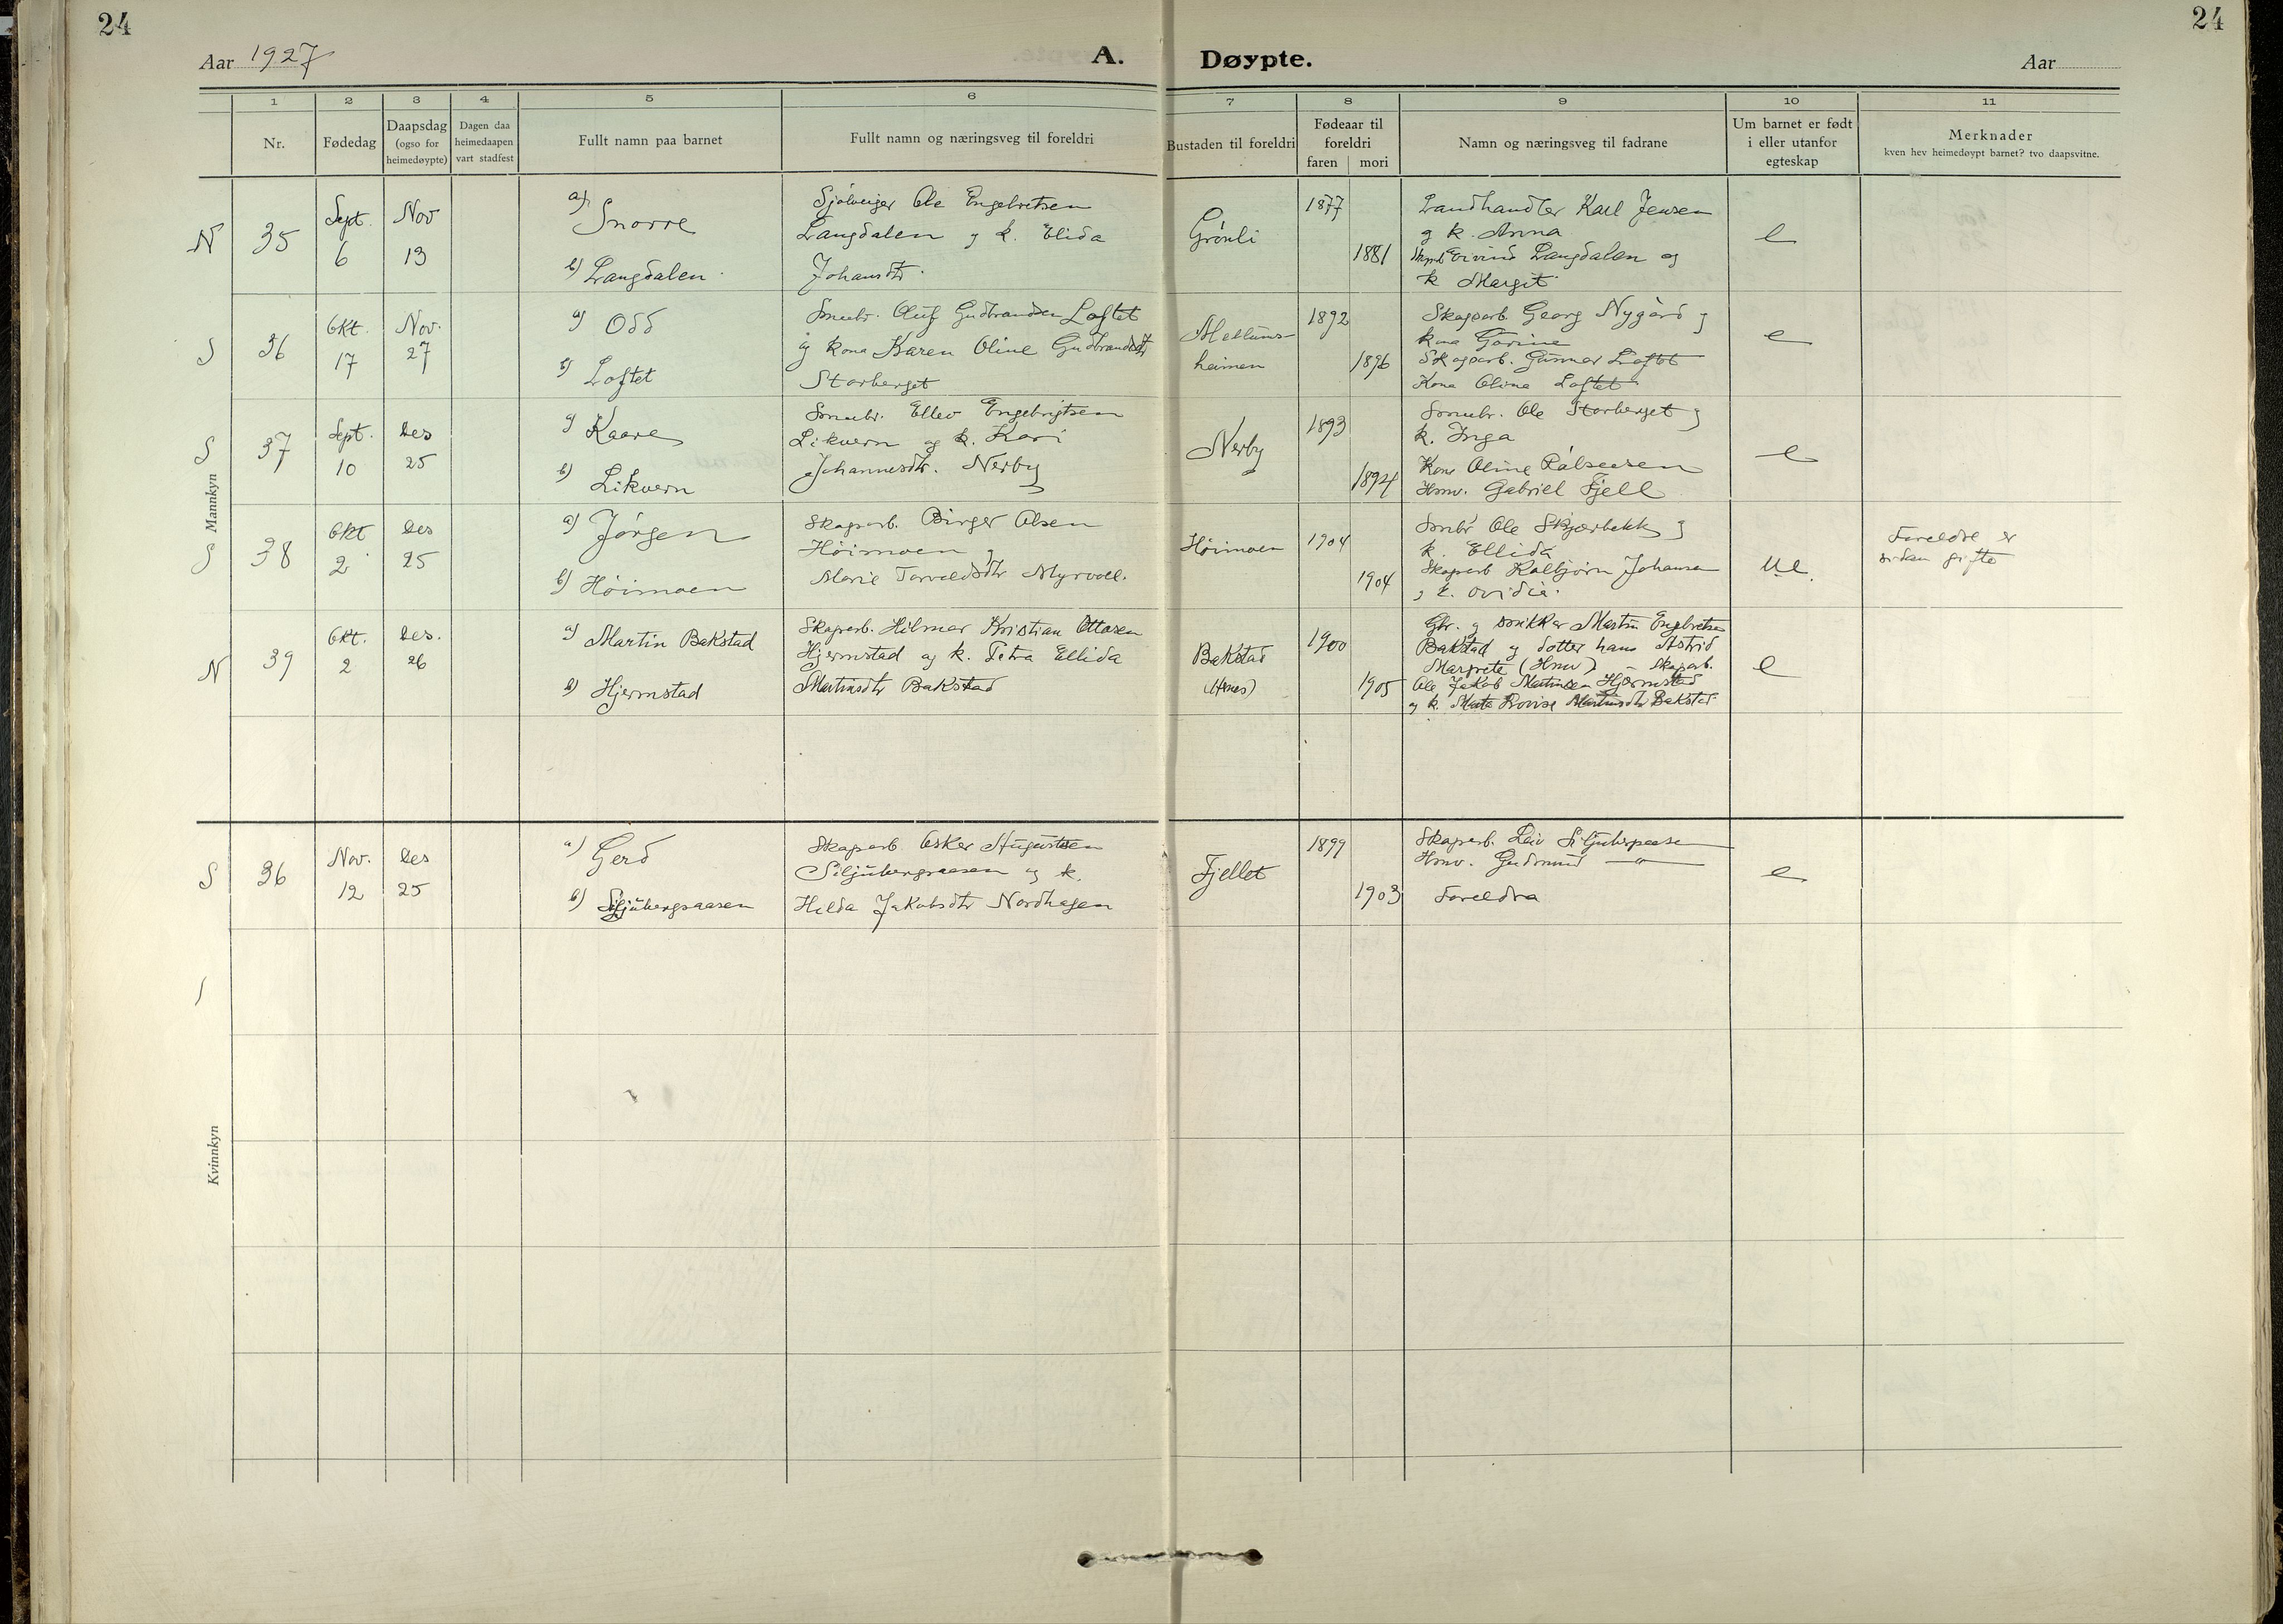 24
24
Aar 1927
A. Døypte.
Aar
1 2 3 4 5 6 7 8 9 10 11
Nr.
Fødedag
Daapsdag
(ogso for
heimedøypte)
Dagen daa
heimedaapen
vart stadfest
Fullt namn paa barnet
Fullt namn og næringsveg til foreldri
Bustaden til foreldri
Fødeaar til
foreldri
faren mori
Namn og næringsveg til fadrane
Um barnet er født
i eller utanfor
egteskap
Merknader
kven hev heimedøypt barnet? tvo daapsvitne.
Mannkyn
N 35
Sept. 6
Nov 13
a) Snorre
b) Langdalen
Sjøleiger Ole Engebretsen
Langdalen og k. Elida
Johansdtr.
Grønli
1877
1881
Landhandler Karl Jensen
og k. Anna
Eivind Langdalen og
k Margit
e
S 36
Okt. 17
Nov. 27
a) Odd
b) Loftet
Smbr. Oluf Gudbrandsen Loftet
og kona Karen Oline Gudbrandsdtr
Storberget
heimen
1892
1896
Skogsarb. Georg Nygård og
kona Gorine
Skogsarb. Gunnar Loftet
Kona Olina Loftet
e
S 37
Sept. 10
Des 25
a) Kaare
b) Likvern
Smbr. Ellev Engebrigtsen
Likvern og k. Kari
Johannesdtr. Nerby
Nerby
1893
1894
Smbr. Ole Storberget og
k. Inga
Kona Oline
Hmv. Gabriel Fjell
e
S 38
Okt 2
Des 25
a) Jørgen
b) Høimoen
Skogsarb. Birger Olsen
Høimoen og
Marie Torvaldsdtr Myrvoll.
Høimoen
1904
1904
Smbr Ole Skjærbekk og
k. Ellida
Skogsarb Kolbjørn Johansen
og k. Ovidia.
ue.
Foreldre er
sidan gifte
N 39
Okt. 2
Des. 26
a) Martin Bakstad
b) Hjermstad
Skogsarb. Hilmar Kristian Ottosen
Hjermstad og k. Petra Ellida
Martinsdtr Bakstad
Bakstad
1900
1905
Gbr. og snikker Martin Engebretsen
Bakstad og dotter hans Astrid
Margrete (Hmv) - Skogsarb.
Ole Jakob Martinsen Hjermstad
og k. Marte Lovise Martinsdtr Bakstad
e
Kvinnkyn
S 36
Nov. 12
Des 25
a) Gerd
b) Siljubergsaasen
Skogsarb Osker Augustsen
Siljubergsaasen og k.
Hilda Jakobsdtr Nordhagen
Fjellet
1899
1903
Skogsarb. Leiv Siljubergsaasen
Hmv. Gudmund — " —
Foreldra
e